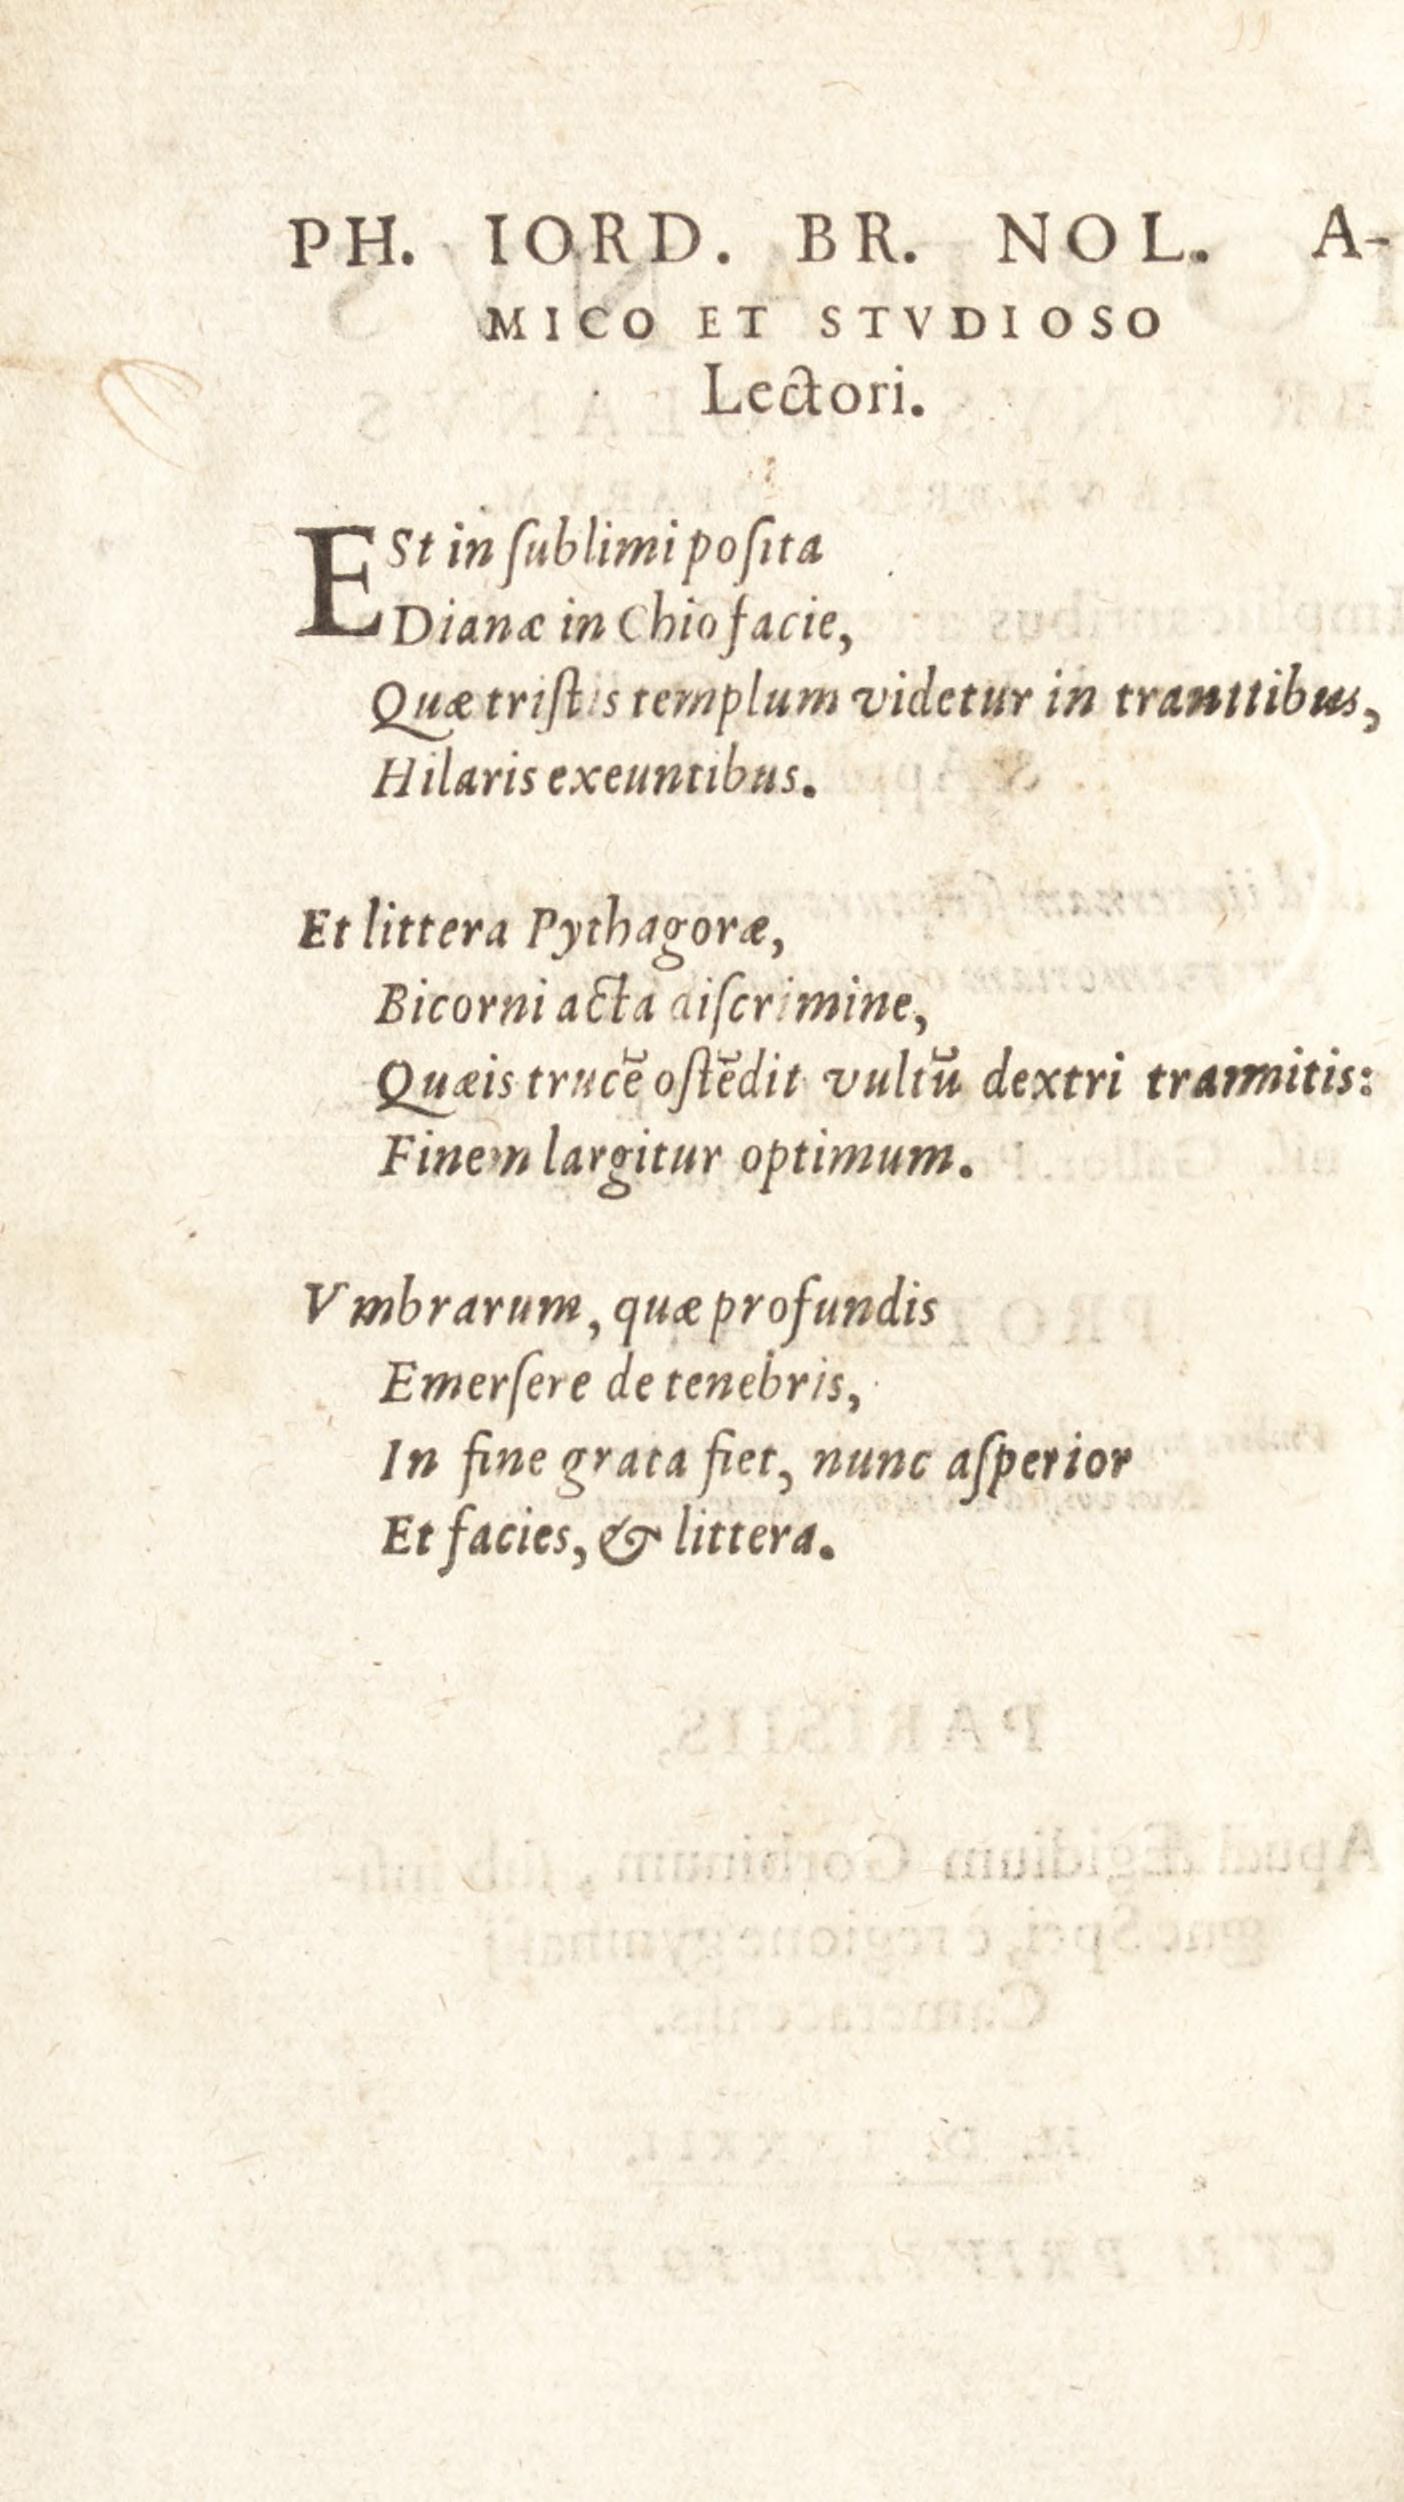 PH. IORD. BR. NOL. A-
MICO ET STVDIOSO
Lectori.
ESt in ſublimi poſita
Dianæ in Chio facie,
Quæ triſtis templum videtur in tranttibus,
Hilaris exeuntibus.
Et littera Pythagoræ,
Bicorni acta diſcrimine,
Quæis trucē oſtēdit vultū dextri tramitis:
Finem largitur optimum.
Vmbrarum, quæ profundis
Emerſere de tenebris,
In fine grata fiet, nunc aſperior
Et facies, & littera.